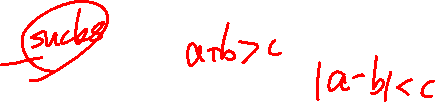 sucks
a+b>c
|a-b|<c